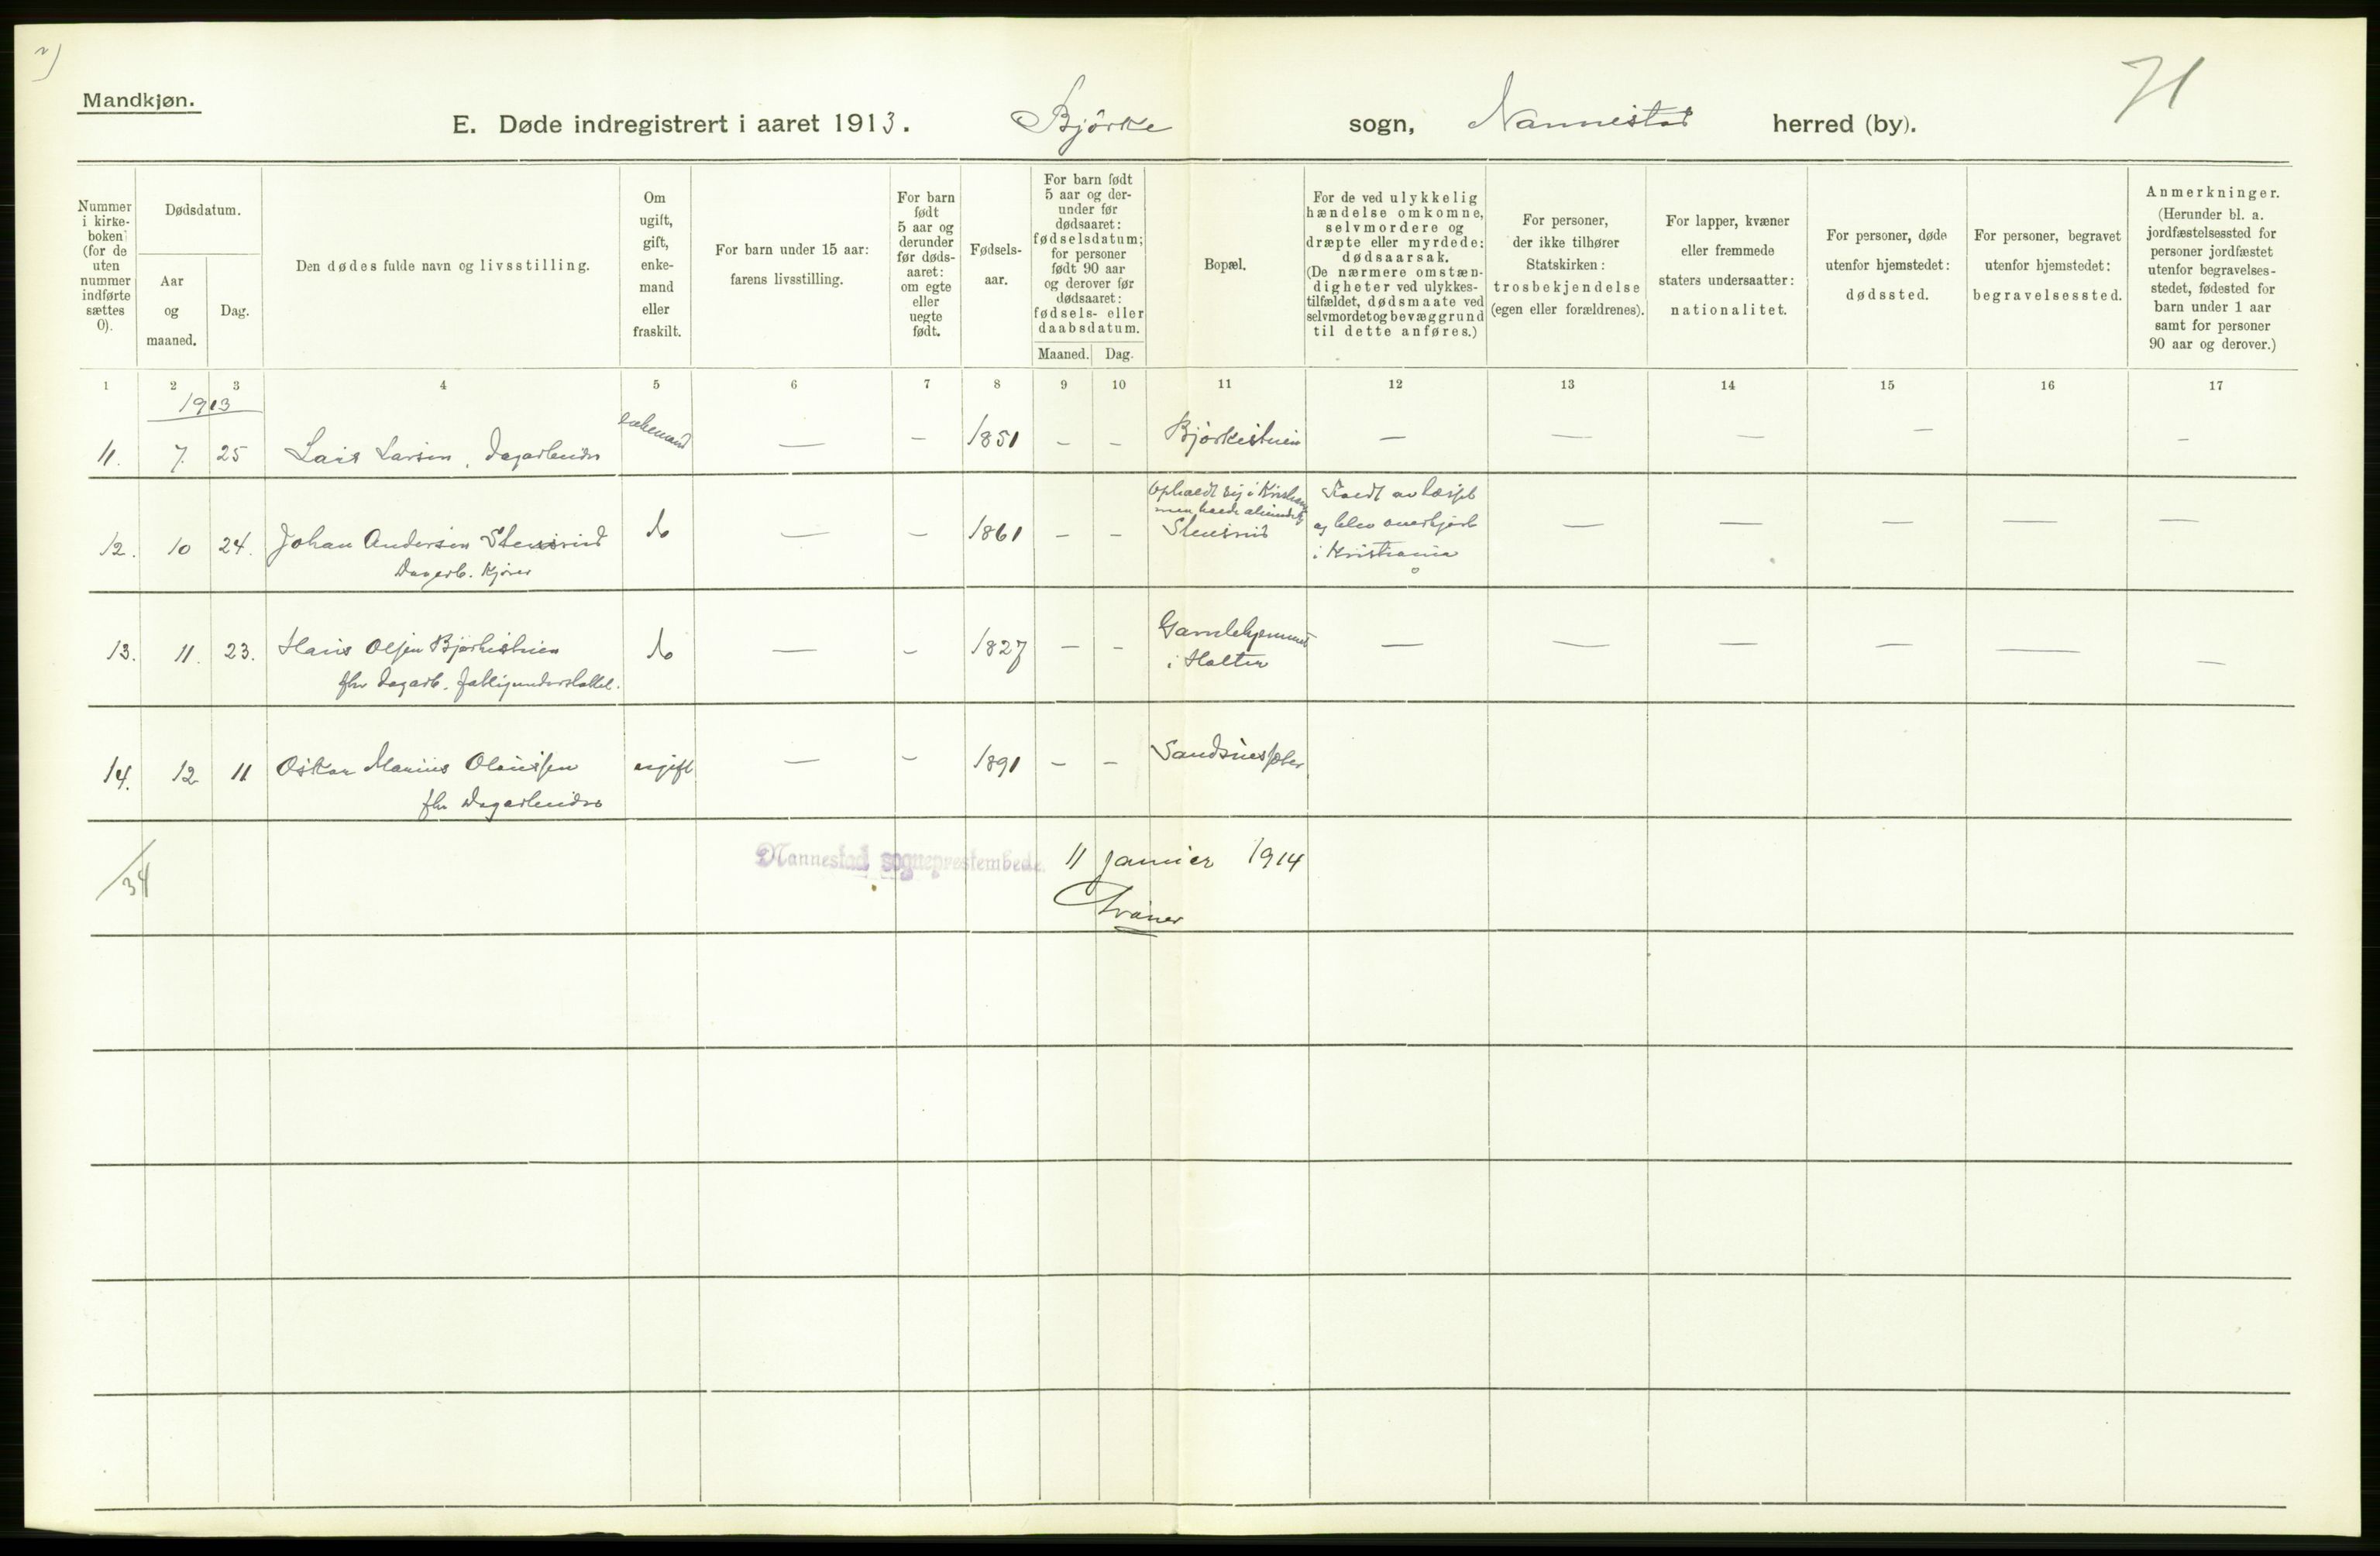 71
Mandkjøn.
E. Døde indregistrert i aaret 1913. Bjørke sogn, Nannestad herred (by).
Nummer i kirke-boken (for de uten nummer indførte sættes 0).
Dødsdatum.
Aar og maaned.
Dag.
Den dødes fulde navn og livsstilling.
Om ugift, gift, enke-mand eller fraskilt.
For barn under 15 aar: farens livsstilling.
For barn født 5 aar og derunder før døds-aaret: om egte eller uegte født.
Fødsels-aar.
For barn født 5 aar og der-under før dødsaaret: fødselsdatum; for personer født 90 aar og derover før dødsaaret: fødsels- eller daabsdatum.
Maaned. Dag.
Bopæl.
For de ved ulykkelig hændelse omkomne, selvmordere og dræpte eller myrdede: dødsaarsak. (De nærmere omstæn-digheter ved ulykkes-tilfældet, dødsmaate ved selvmordet og bevæggrund til dette anføres.)
For personer, der ikke tilhører Statskirken: trosbekjendelse (egen eller forældrenes).
For lapper, kvæner eller fremmede staters undersaatter: nationalitet.
For personer, døde utenfor hjemstedet: dødssted.
For personer, begravet utenfor hjemstedet: begravelsessted.
Anmerkninger. (Herunder bl. a. jordfæstelsessted for personer jordfæstet utenfor begravelses-stedet, fødested for barn under 1 aar samt for personer 90 aar og derover.)
1 2 3 4 5 6 7 8 9 10 11 12 13 14 15 16 17
1913
11. 7. 25 Lars Larsen, dagarbeider enkemand — — 1851 – – Bjørkestuen — — — — —
12. 10 24. Johan Andersen Stensrud do — — 1861 – – Opholdt sig i Kristiania men havde Stensrud Faldt av læsset og blev overkjørt i Kristiania — — — — —
Dagarb. Kjører
13. 11. 23. Hans Olsen Bjørkestuen do — – 1827 – – Gamlehjemmet i Holter — — — — — —
fhv dagarb. fattigunderstøttet.
14. 12 11 Oskar Marius Olaussen ugift — – 1891 – –
fhv Dagarbeider
/34
Nannestad sogneprestembede 11 januar 1914